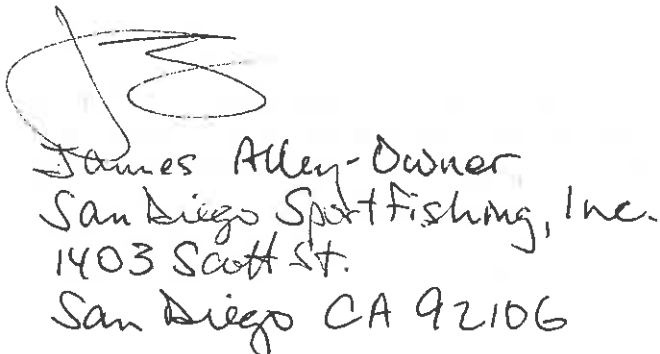 James Alley-Owner
San Diego Sportfishing, Inc.
1403 Scott St.
San Diego CA 92106